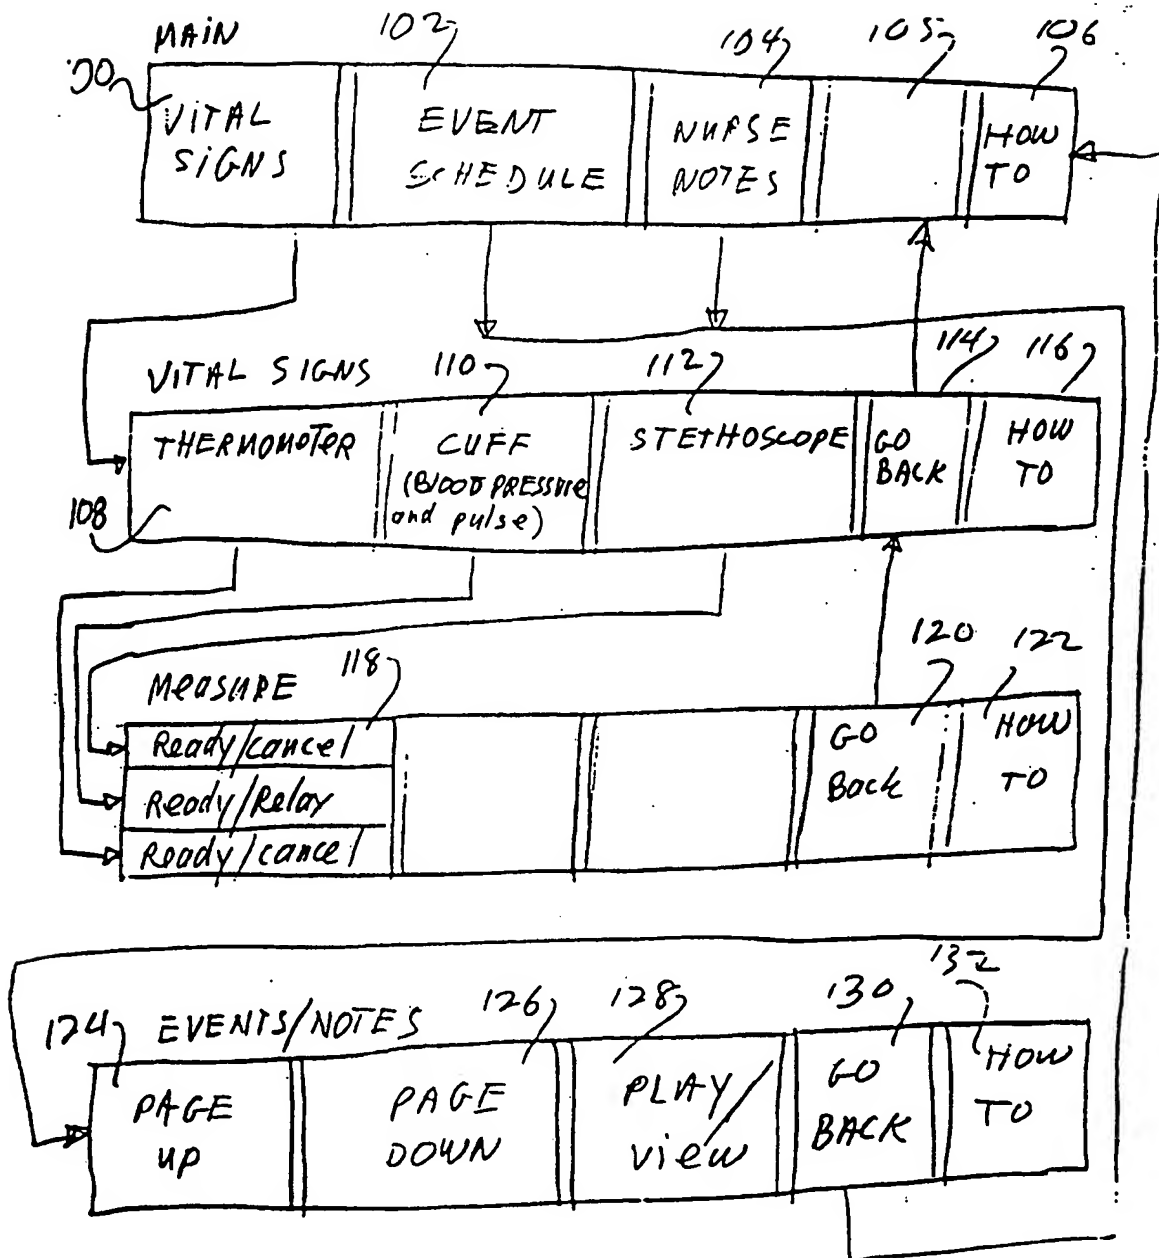 MAIN
102
104
105
106
VITAL
SIGNS
EVENT
SCHEDULE
NURSE
NOTES
HOW
TO
VITAL SIGNS
110
112
114
116
THERMOMOTER
CUFF
(BLOOD PRESSURE
and pulse)
STETHOSCOPE
GO
BACK
HOW
TO
108
MEASURE
118
120
122
Ready/cancel
Ready/Relay
Ready/cancel
GO
Back
HOW
TO
EVENTS/NOTES
124
126
128
130
132
PAGE
UP
PAGE
DOWN
PLAY/
view
GO
BACK
HOW
TO